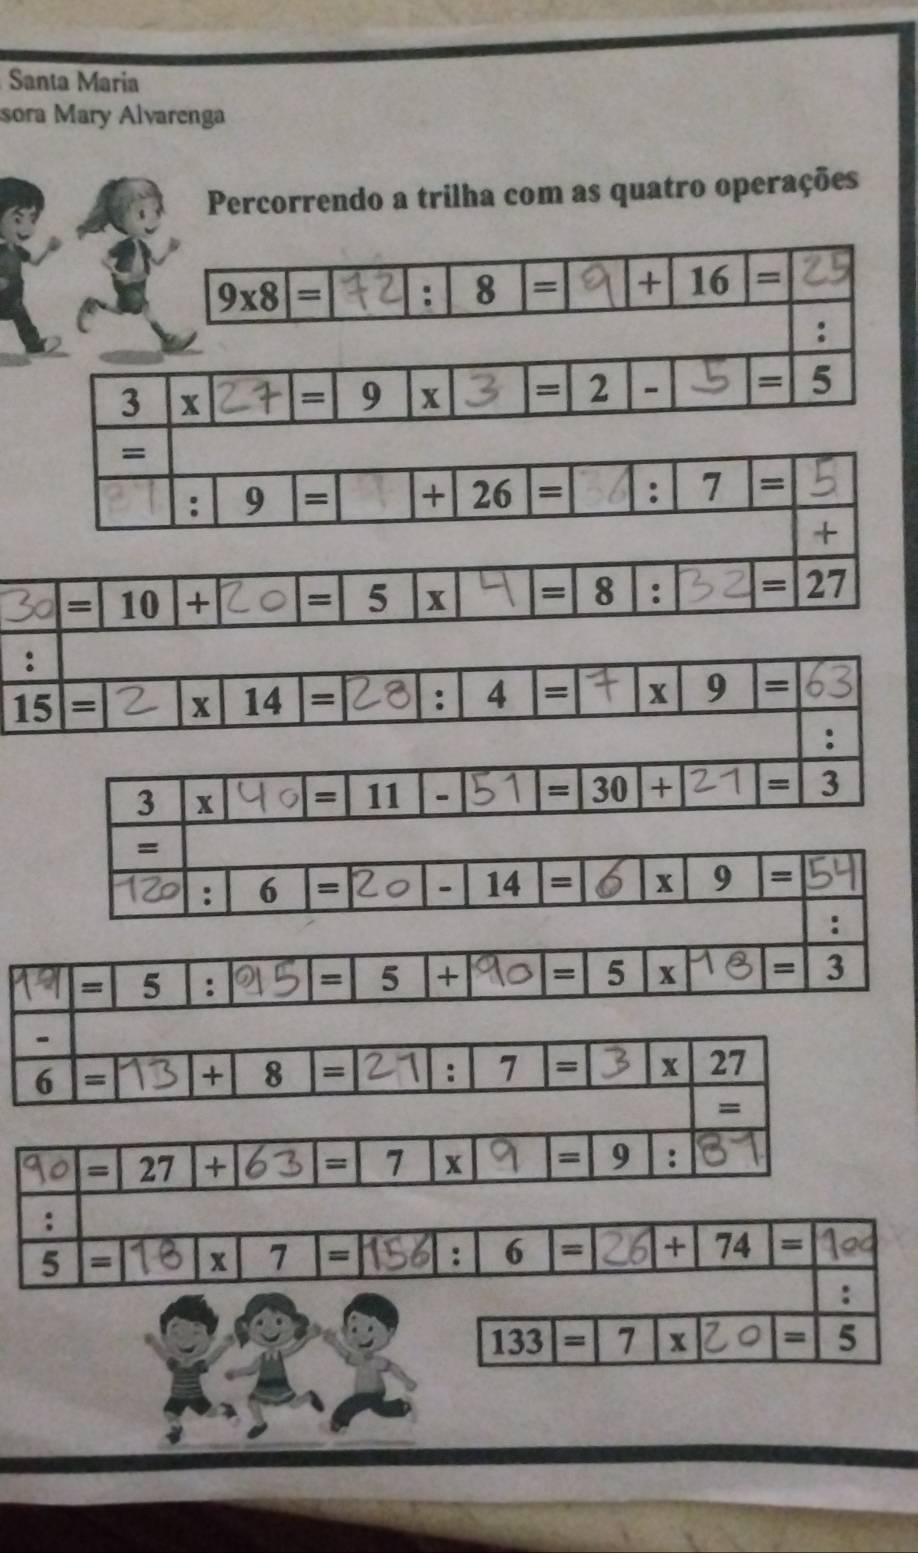 Santa Maria
sora Mary Alvarenga
Percorrendo a trilha com as quatro operações
9x8 = 72 : 8 = 9 + 16 = 25
:
3 x 27 = 9 x 3 = 2 - 5 = 5
=
81 : 9 = + 26 = 36 : 7 = 5
+
30 = 10 + 20 = 5 x 4 = 8 : 32 = 27
:
15 = 2 x 14 = 28 : 4 = 7 x 9 = 63
:
3 x 40 = 11 - 51 = 30 + 21 = 3
=
120 : 6 = 20 - 14 = 6 x 9 = 54
:
19 = 5 : 95 = 5 + 90 = 5 x 18 = 3
-
6 = 13 + 8 = 21 : 7 = 3 x 27
=
90 = 27 + 63 = 7 x 9 = 9 : 81
:
5 = 18 x 7 = 156 : 6 = 26 + 74 = 100
:
133 = 7 x 20 = 5